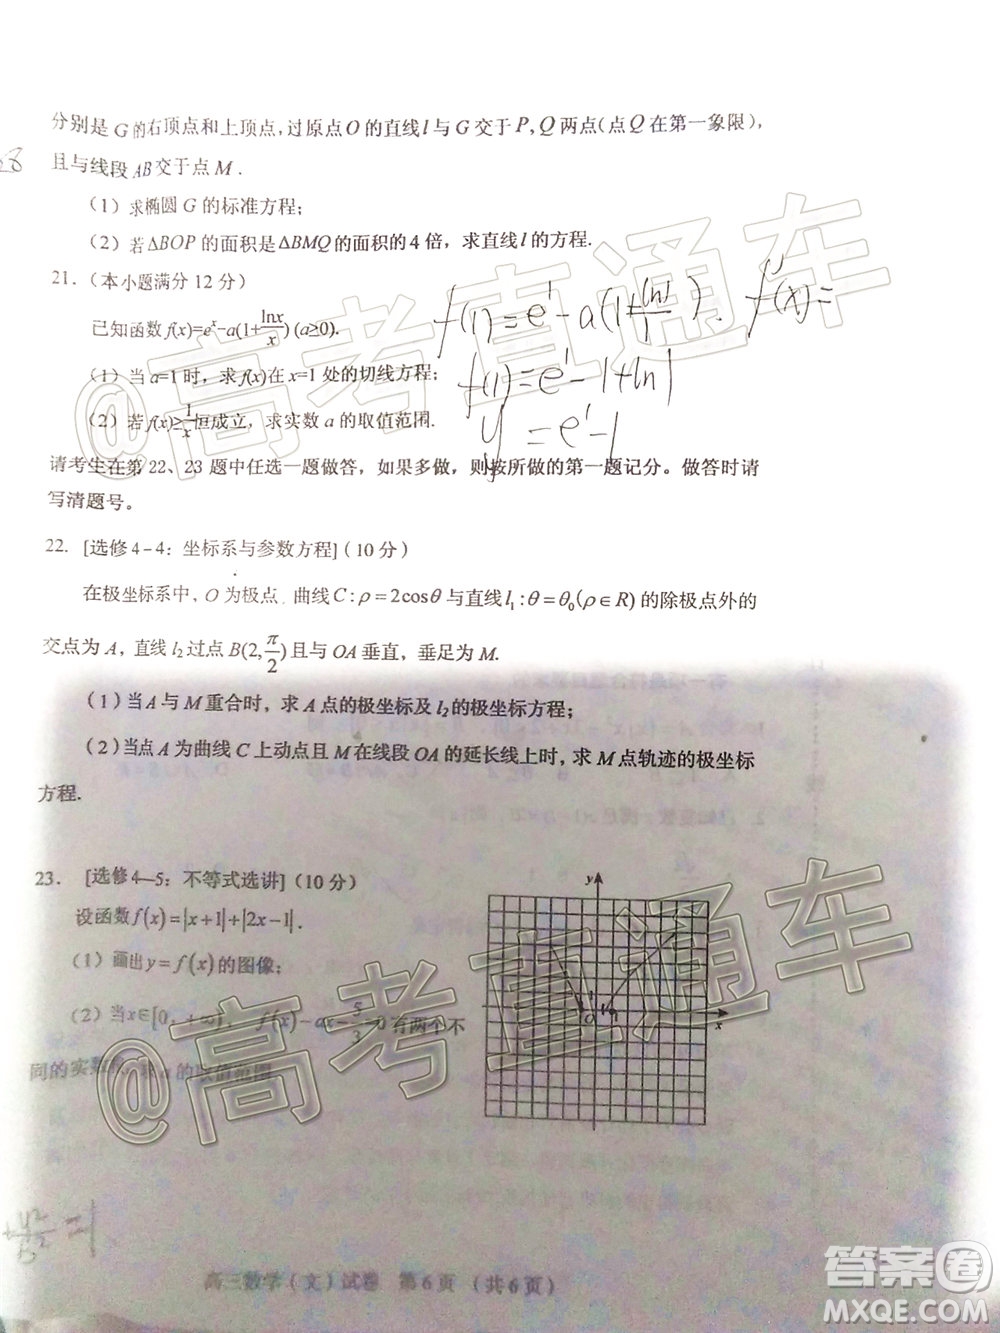 分别是 G 的右顶点和上顶点,过原点 O 的直线 l 与 G 交于 P, Q 两点(点 Q 在第一象限),
且与线段 AB 交于点 M .
(1) 求椭圆 G 的标准方程;
(2) 若 ΔBOP 的面积是 ΔBMQ 的面积的 4 倍，求直线 l 的方程.
21.（本小题满分 12 分）
已知函数 f(x)=eˣ-a(1+lnx/x) (a≥0).
(1) 当 a=1 时，求 f(x) 在 x=1 处的切线方程;
(2) 若 f(x)≥1/x 恒成立，求实数 a 的取值范围.
f(1)=e¹-a(1+ln1/1). f'(x)=
f(1)=e¹-1+ln1
y=e¹-1
请考生在第 22、23 题中任选一题做答，如果多做，则按所做的第一题记分。做答时请
写清题号。
22. [选修 4-4：坐标系与参数方程]（10 分）
在极坐标系中，O 为极点. 曲线 C : ρ = 2cosθ 与直线 l₁ : θ = θ₀(ρ∈R) 的除极点外的
交点为 A，直线 l₂ 过点 B(2, π/2) 且与 OA 垂直，垂足为 M.
(1) 当 A 与 M 重合时，求 A 点的极坐标及 l₂ 的极坐标方程;
(2) 当点 A 为曲线 C 上动点且 M 在线段 OA 的延长线上时，求 M 点轨迹的极坐标
方程.
23. [选修 4—5：不等式选讲]（10 分）
设函数 f(x)=|x+1|+|2x-1|.
(1) 画出 y=f(x) 的图像;
(2) 当 x∈[0, +∞), f(x)-ax-5/3=0 有两个不
同的实数根，求 a 的取值范围.
y
O
1
x
高三数学（文）试卷 第 6 页 （共 6 页）
@高考直通车
@高考直通车
答案圈
MXQE.COM